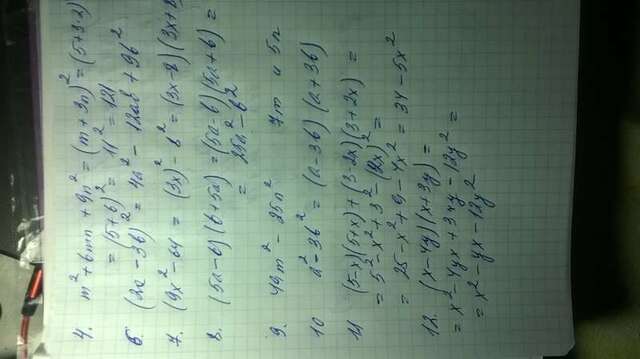 4. m² + 6mn + 9n² = (m + 3n)² = (5+3·2)
= (5+6)² = 11² = 121
5. (2a - 3b)² = 4a² - 12ab + 9b²
7. (9x² - 64 = (3x)² - 8² = (3x - 8)(3x+8
8. (5a - b)(b + 5a) = (5a - b)(5a + b) =
= 25a² - b²
9. 49m² - 25n² 7m и 5n
10 a² = 3b² = (a - 3b)(a + 3b)
11 (5-x)(5+x) + (3-2x)(3+2x) =
= 5² - x² + 3² - (2x)² =
= 25 - x² + 9 - 4x² = 34 - 5x²
12. (x - 4y)(x + 3y) =
= x² - 4yx + 3xy - 12y² =
= x² - yx - 12y²